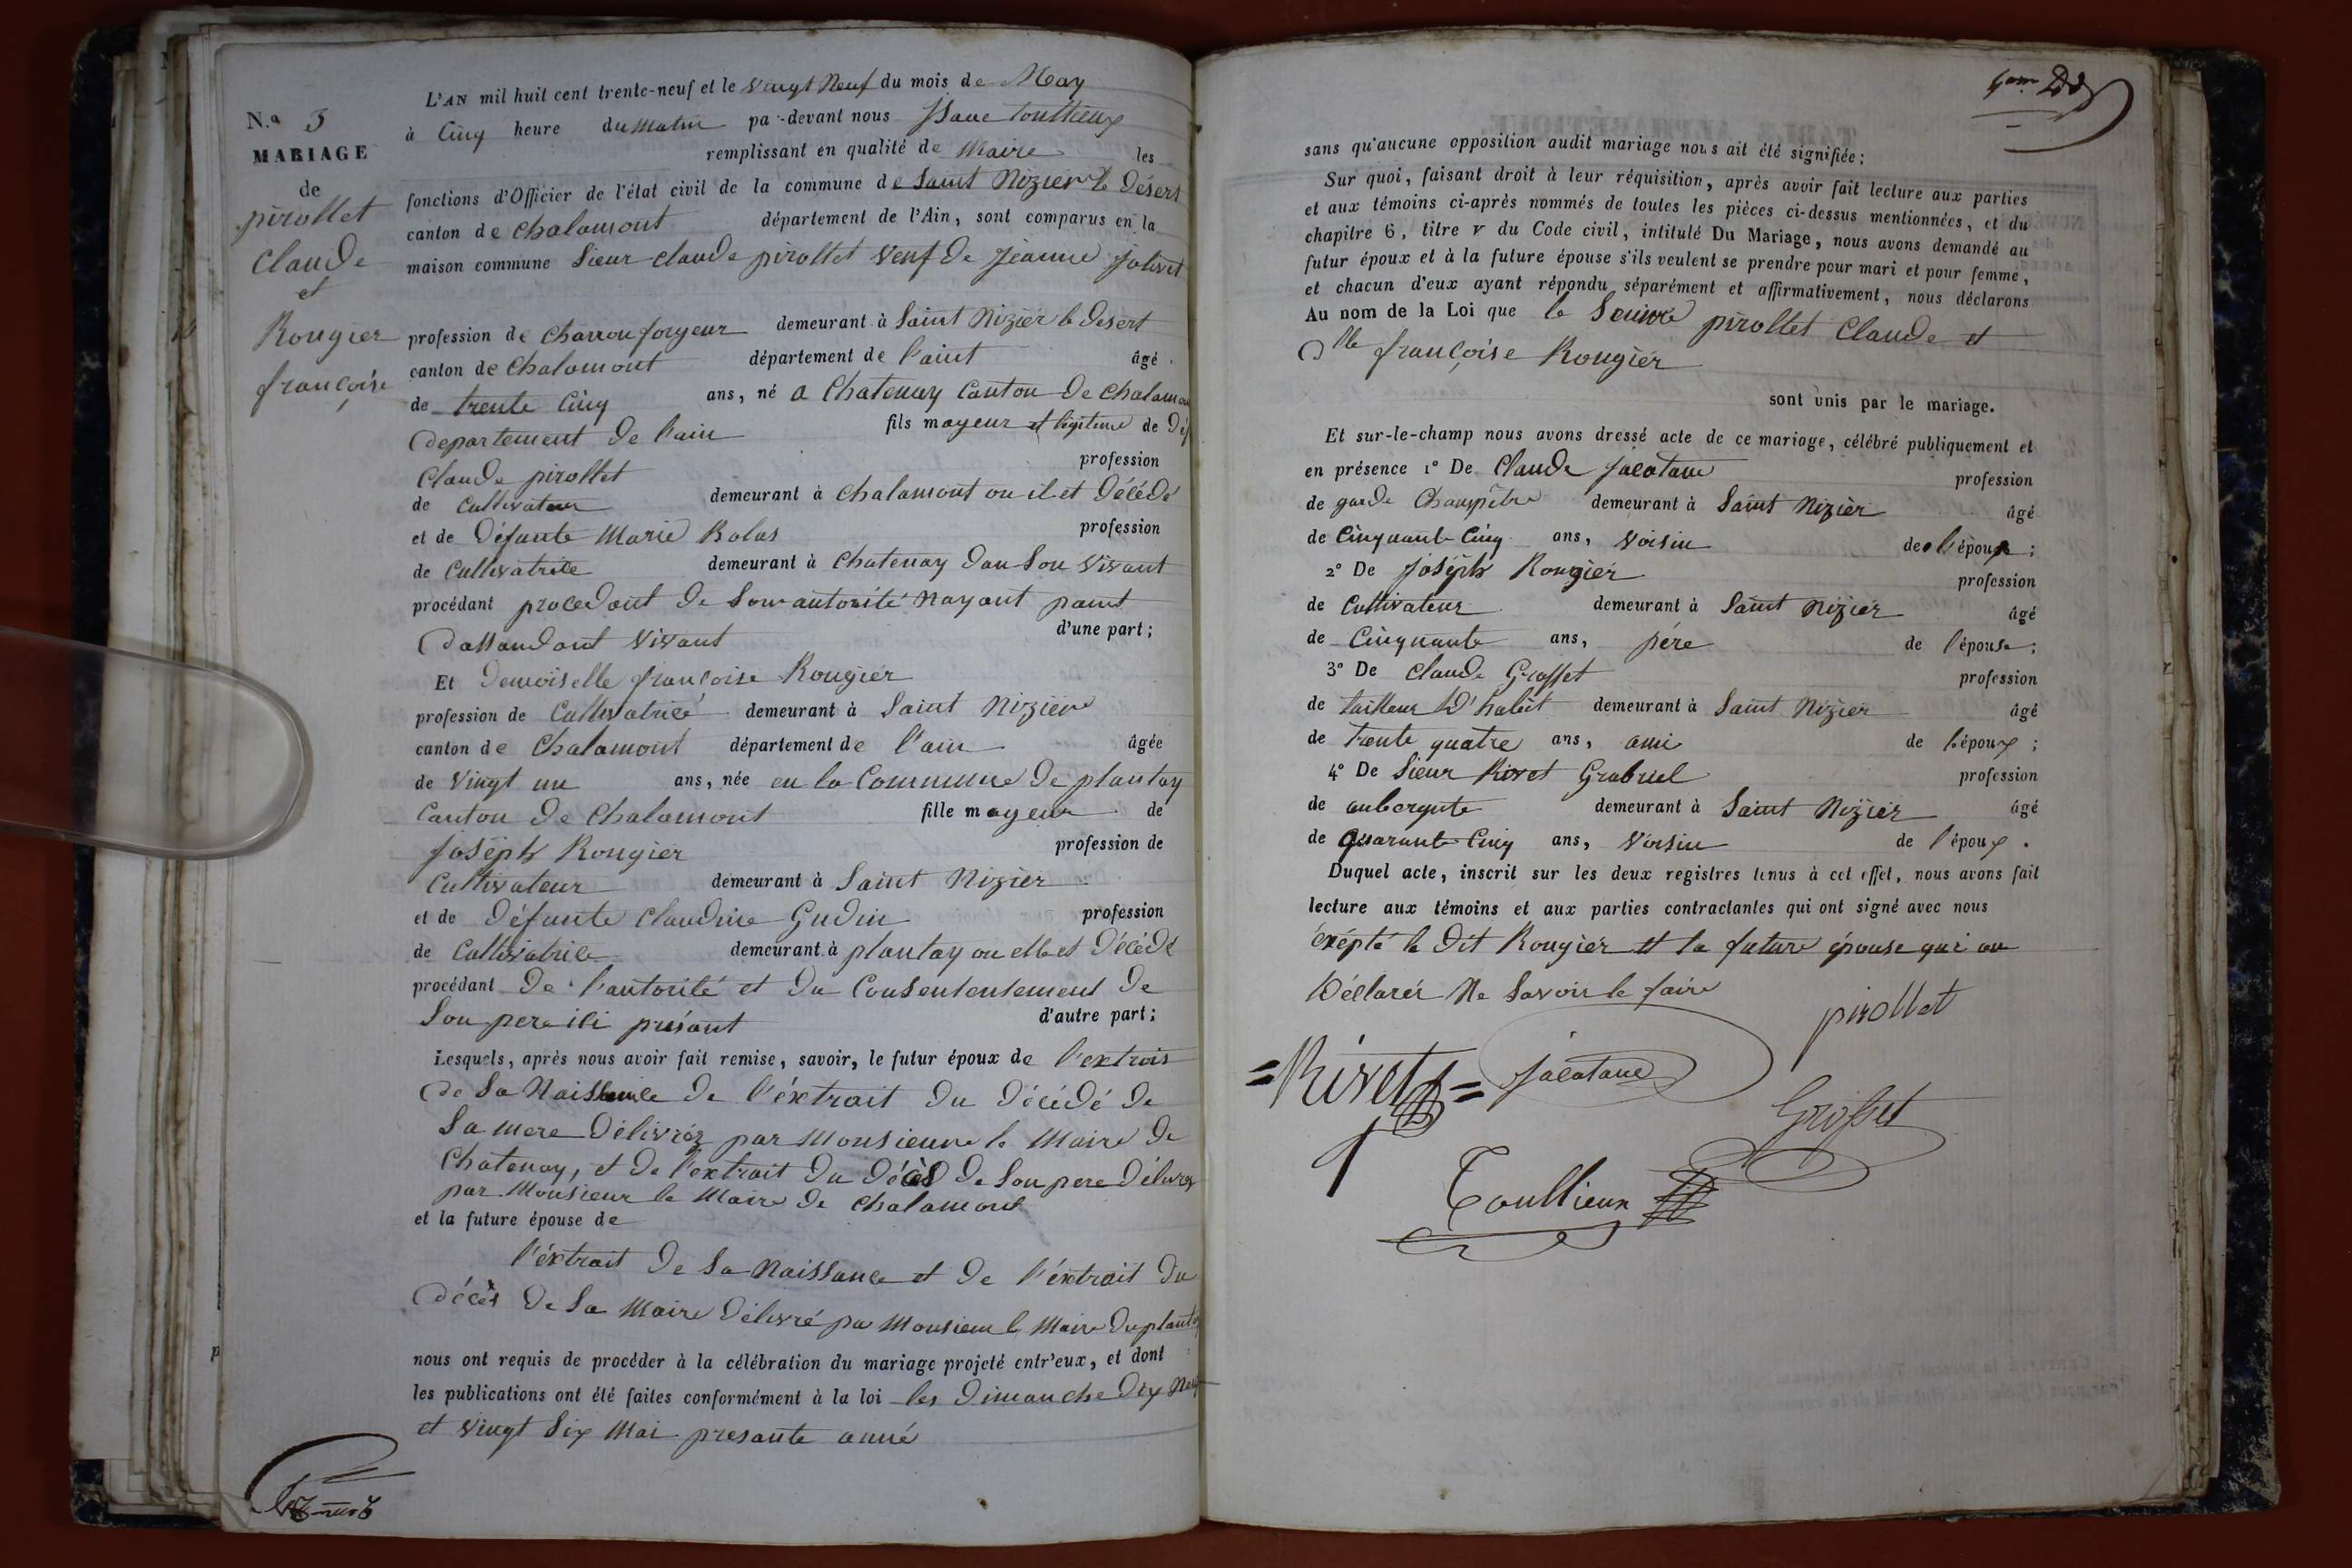 N.o 3
MARIAGE
de
pirollet
Claude
et
Rougier
françoise
L'AN mil huit cent trente-neuf et le vingt Neuf du mois de May
à Cinq heure du matin par-devant nous Isaac Toullieux
remplissant en qualité de Maire les
fonctions d'Officier de l'état civil de la commune de Saint Nizier le Désert
canton de Chalamont département de l'Ain, sont comparus en la
maison commune Sieur claude pirollet veuf de Jeanne Jolivet
profession de Charron forgeur demeurant à Saint Nizier le Desert
canton de Chalamont département de l'aint âgé
de trente Cinq ans, né a Chatenay Canton de Chalamon
departement de l'ain fils mayeur et légitime de déf
Claude pirollet profession
de Cultivateur demeurant à Chalamont ou il et Décédé
et de Défunte Marie Bolas profession
de Cultivatrice demeurant à Chatenay dan Son Vivant
procédant procedant de Son autorité nayant point
dassandant vivant d'une part;
Et Demoiselle françoise Rougier
profession de Cultivatrice demeurant à Saint Nizier
canton de Chalamont département de l'ain âgée
de Vingt un ans, née en la Commune de plantay
Canton de Chalamont fille mayeur de
Joséph Rougier profession de
Cultivateur demeurant à Saint Nizier
et de défunte Claudine Gudin profession
de Cultivatrice demeurant à plantay ou elle et Décédé
procédant de l'autorité et du Consententement de
Son pere ici présant d'autre part;
Lesquels, après nous avoir fait remise, savoir, le futur époux de l'extrais
de Sa Naissance de l'éxtrait du décédé de
Sa mere Délivréz par Monsieure le Maire de
Chatenay, et de l'extrait du décès de Son pere délivrez
par Monsieur le Maire de Chalamont
et la future épouse de
l'éxtrait de Sa Naissance et de l'éxtrait du
décès de Sa Maire délivré par Monsieur le Maire du plantay
nous ont requis de procéder à la célébration du mariage projeté entr'eux, et dont
les publications ont été faites conformément à la loi les Dimanche Dix Neuf
et Vingt Six Mai presante anné
sans qu'aucune opposition audit mariage nous ait été signifiée;
Sur quoi, faisant droit à leur réquisition, après avoir fait lecture aux parties
et aux témoins ci-après nommés de toutes les pièces ci-dessus mentionnées, et du
chapitre 6, titre v du Code civil, intitulé Du Mariage, nous avons demandé au
futur époux et à la future épouse s'ils veulent se prendre pour mari et pour femme,
et chacun d'eux ayant répondu séparément et affirmativement, nous déclarons
Au nom de la Loi que le pirollet Claude et
Dlle françoise Rougier
sont unis par le mariage.
Et sur-le-champ nous avons dressé acte de ce mariage, célébré publiquement et
en présence 1° De Claude Jacotane profession
de garde Champêtre demeurant à Saint Nizier âgé
de Cinquante Cinq ans, Voisin de l'époux;
2° De Joséph Rougier profession
de Cultivateur demeurant à Saint Nizier âgé
de Cinquante ans, pére de l'épouse;
3° De Claude Grosset profession
de tailleur D'habit demeurant à Saint Nizier âgé
de trente quatre ans, ami de l'époux;
4° De Sieur Rivet Grabriel profession
de aubergiste demeurant à Saint Nizier âgé
de quarante Cinq ans, Voisin de l'époux.
Duquel acte, inscrit sur les deux registres tenus à cet effet, nous avons fait
lecture aux témoins et aux parties contractantes qui ont signé avec nous
éxépté le dit Rougier et la future épouse qui on
Déclarér Ne Savoir le faire
pirollet
=Rivet= Jacotane
Grosset
Toullieux